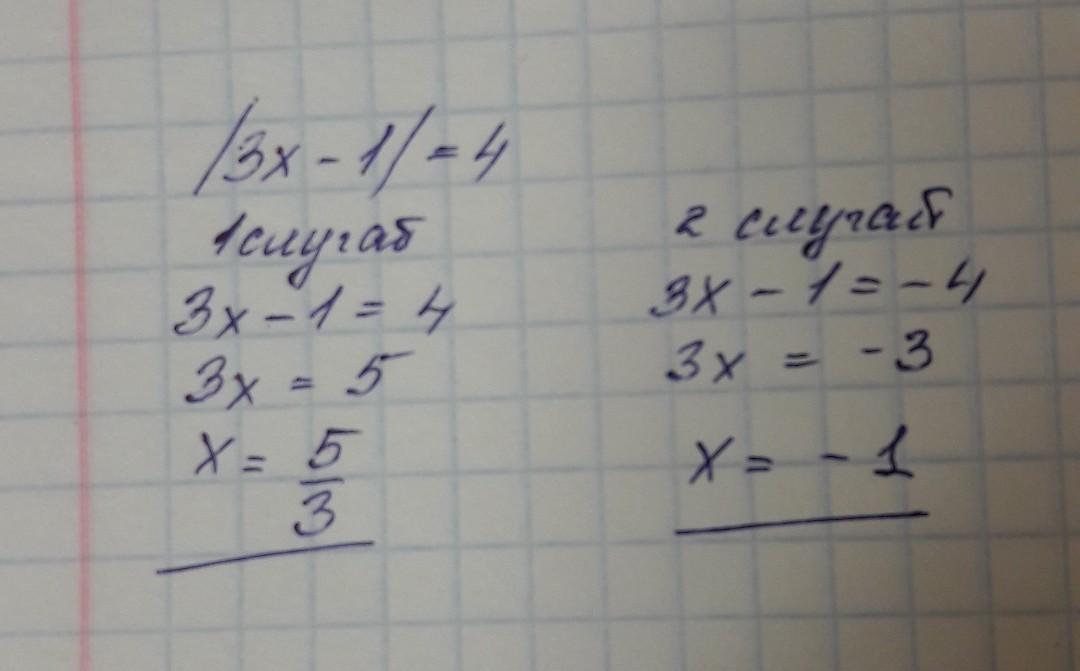 |3x - 1| = 4
1 случай
3x - 1 = 4
3x = 5
x = 5/3
2 случай
3x - 1 = -4
3x = -3
x = -1